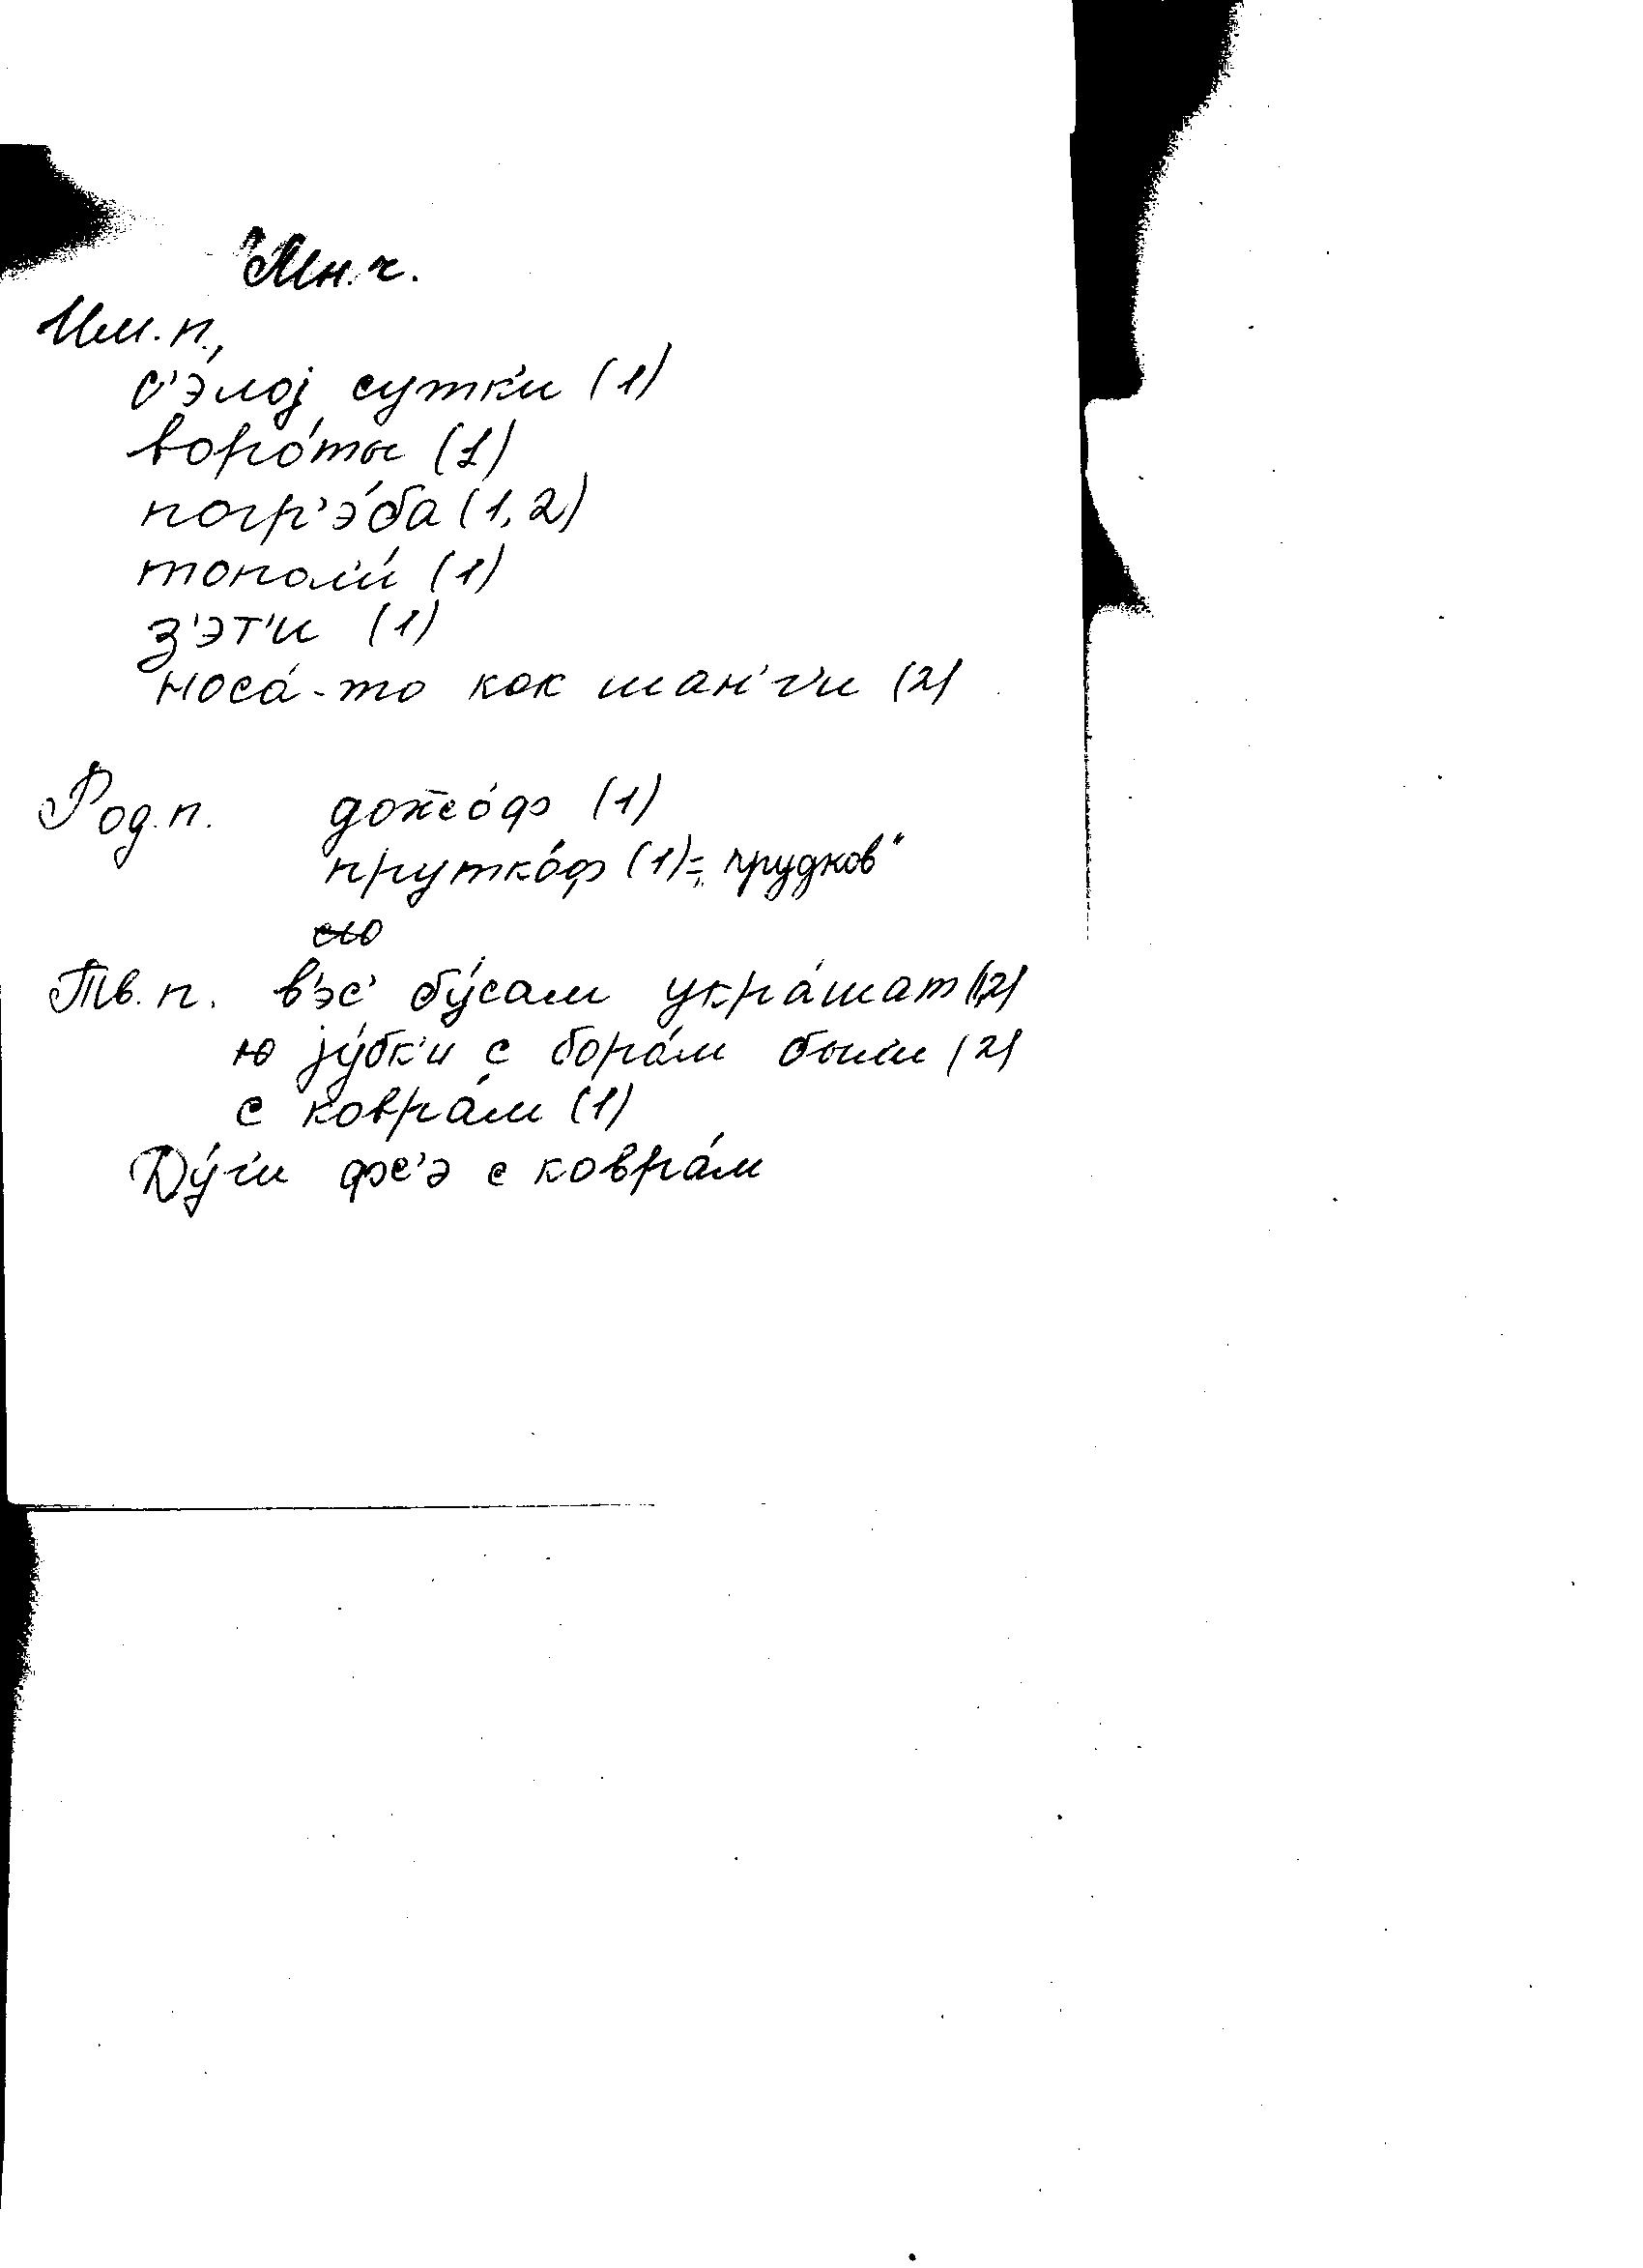 Мн.ч.
Им.п.,
с'э́лој сутк'и (1)
воро́ты (1)
погр'э́ба (1,2)
топол'и́ (1)
з'эт'и (1)
носа́-то как шан'г'и (2)
Род.п. дожжо́ф (1)
прутко́ф (1) = „прудков"
Тв.п. в'эс' бу́сам укра́шат (1,2)
ю јубк'и с бора́м был'и (2)
с ковра́м (1)
Ду́г'и фс'э с ковра́м